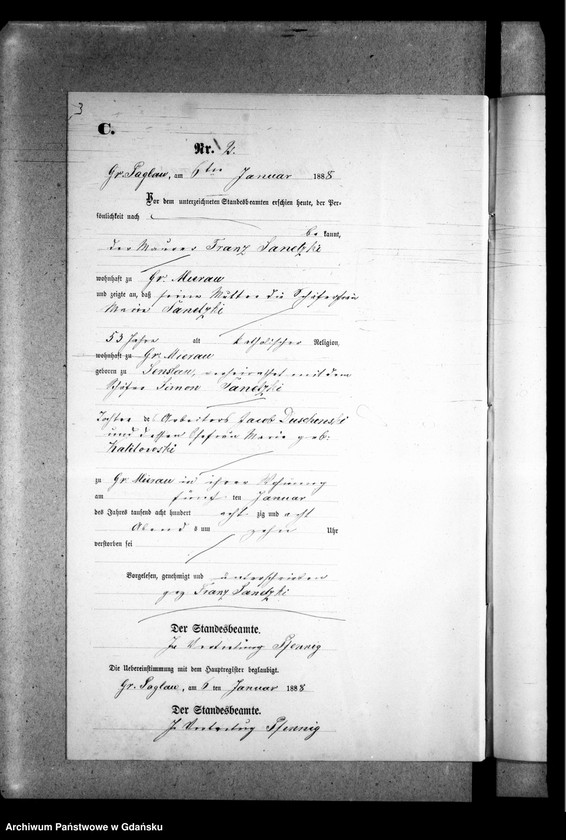 3
C.
Nr. 2.
Gr. Paglau, am 6ten Januar 1888
Vor dem unterzeichneten Standesbeamten erschien heute, der Per-
sönlichkeit nach
be kannt,
der Maurer Franz Janetzki
wohnhaft zu Gr. Mierau
und zeigte an, daß seine Mutter die Schäferfrau
Marie Janetzki
53 Jahre alt katholischer Religion,
wohnhaft zu Gr. Mierau
geboren zu verheirathet mit dem
Schäfer Simon Janetzki
Tochter des Arbeiters Jacob
und dessen Ehefrau Marie geb.
zu Gr. Mierau in ihrer Wohnung
am fünf ten Januar
des Jahres tausend acht hundert acht zig und acht
Abend s um zehn Uhr
verstorben sei
Vorgelesen, genehmigt und unterschrieben
gez. Franz Janetzki
Der Standesbeamte.
In Vertretung Pfennig
Die Uebereinstimmung mit dem Hauptregister beglaubigt.
Gr. Paglau, am 6 ten Januar 1888
Der Standesbeamte.
In Vertretung Pfennig
Archiwum Państwowe w Gdańsku